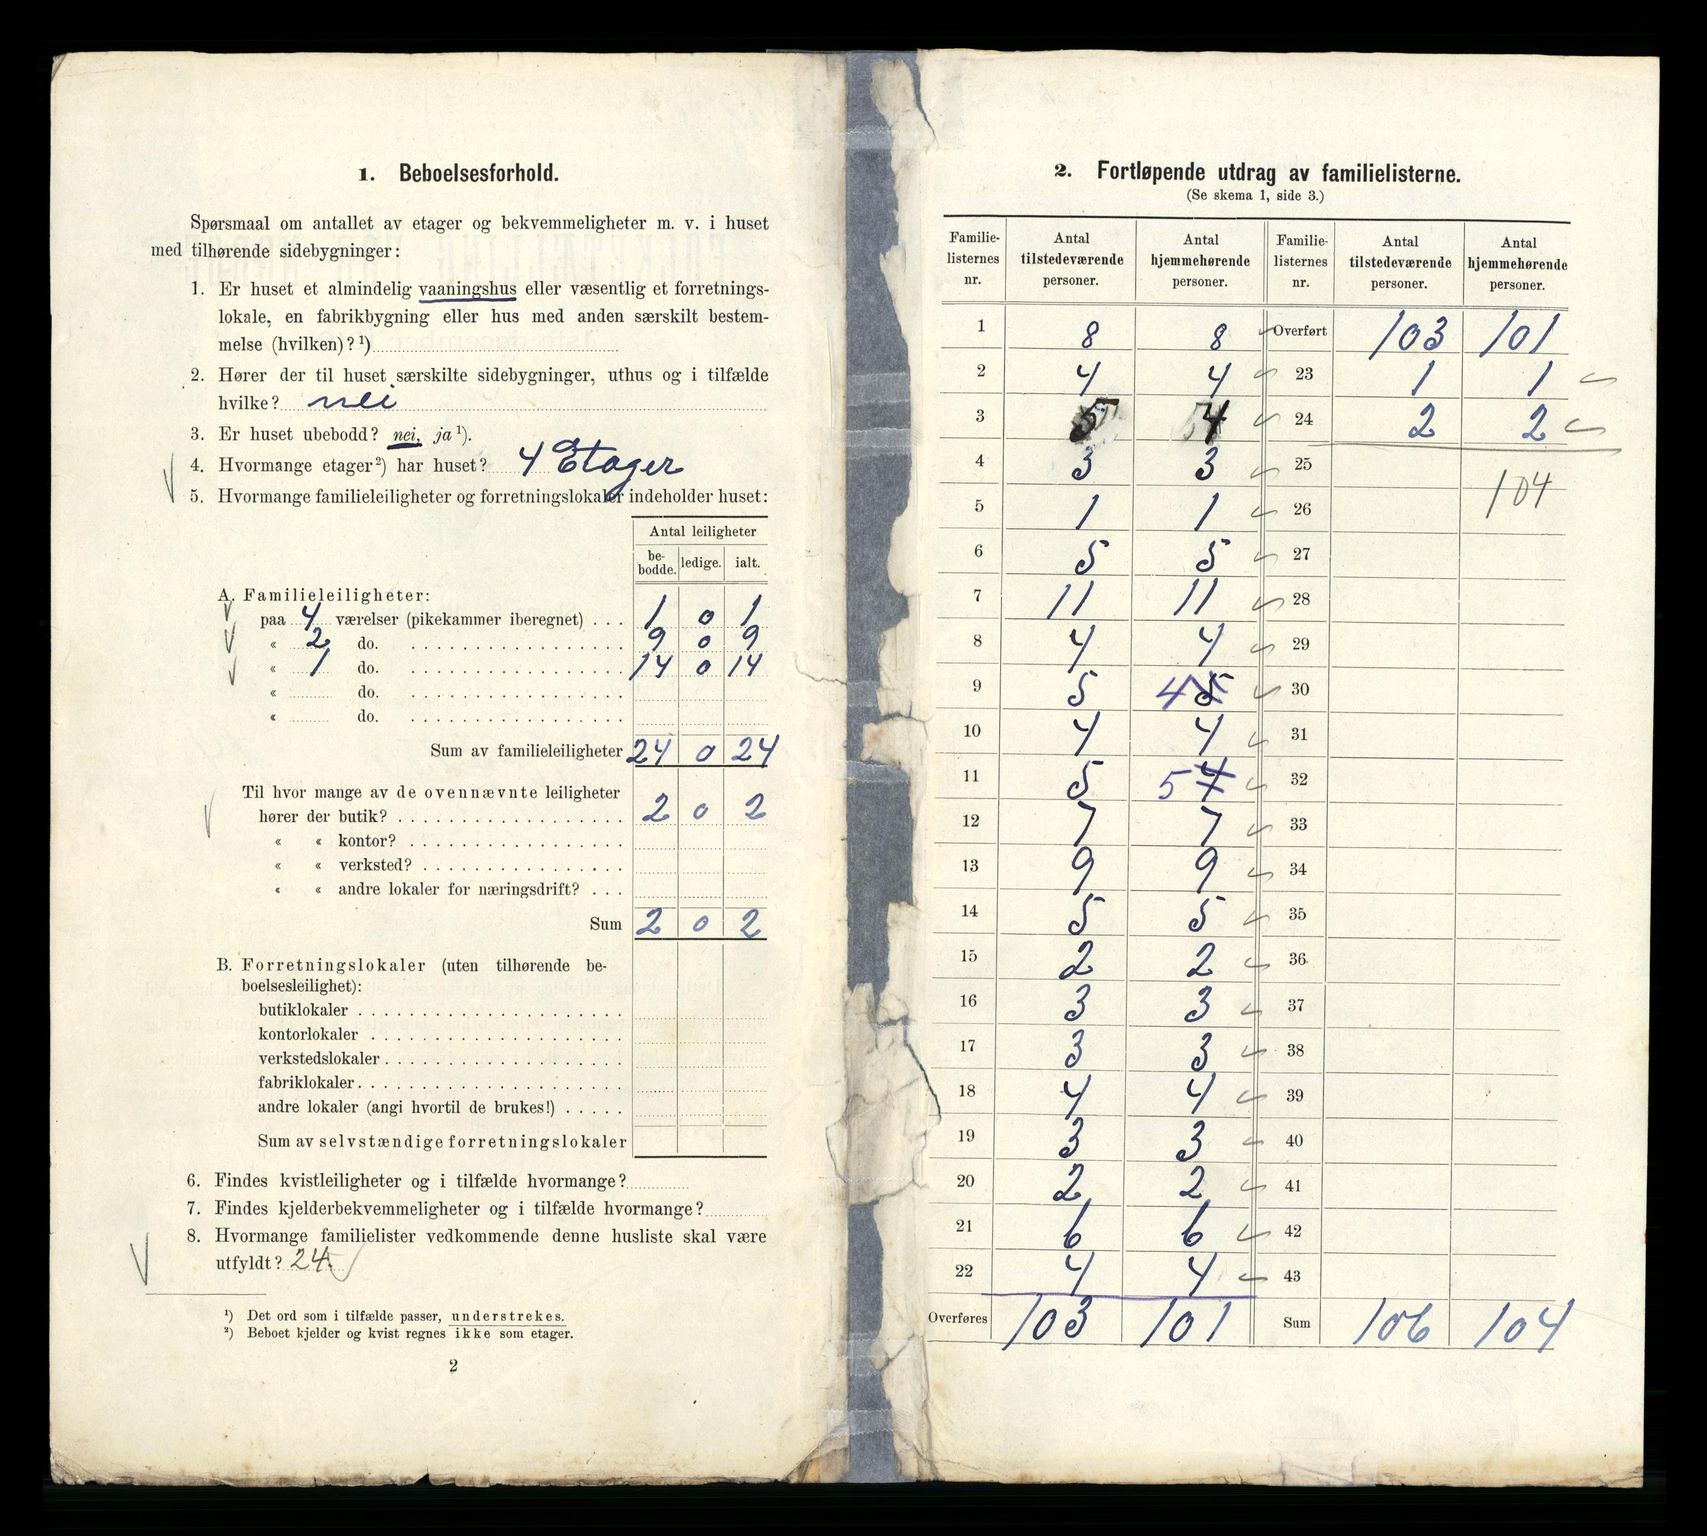 1. Beboelsesforhold.
Spørsmaal om antallet av etager og bekvemmeligheter m. v. i huset
med tilhørende sidebygninger:
1. Er huset et almindelig vaaningshus eller væsentlig et forretnings-
lokale, en fabrikbygning eller hus med anden særskilt bestem-
melse (hvilken)? ¹)
2. Hører der til huset særskilte sidebygninger, uthus og i tilfælde
hvilke? nei
3. Er huset ubebodd? nei, ja ¹).
4. Hvormange etager ²) har huset? 4 Etager
5. Hvormange familieleiligheter og forretningslokaler indeholder huset:
Antal leiligheter
be-bodde. ledige. ialt.
A. Familieleiligheter:
paa 4 værelser (pikekammer iberegnet) . . . 1 0 1
« 2 do. 9 0 9
« 1 do. 14 0 14
« do.
« do.
Sum av familieleiligheter 24 0 24
Til hvor mange av de ovennævnte leiligheter
hører der butik? 2 0 2
« « kontor?
« « verksted?
« « andre lokaler for næringsdrift? . . .
Sum 2 0 2
B. Forretningslokaler (uten tilhørende be-
boelsesleilighet):
butiklokaler
kontorlokaler
verkstedslokaler
fabriklokaler
andre lokaler (angi hvortil de brukes!)
Sum av selvstændige forretningslokaler
6. Findes kvistleiligheter og i tilfælde hvormange?
7. Findes kjelderbekvemmeligheter og i tilfælde hvormange?
8. Hvormange familielister vedkommende denne husliste skal være
utfyldt? 24.
¹) Det ord som i tilfælde passer, understrekes.
²) Beboet kjelder og kvist regnes ikke som etager.
2
2. Fortløpende utdrag av familielisterne.
(Se skema 1, side 3.)
Familie- Antal Antal Familie- Antal Antal
listernes tilstedeværende hjemmehørende listernes tilstedeværende hjemmehørende
nr. personer. personer. nr. personer. personer.
1 8 8 Overført 103 101
2 4 4 23 1 1
3 5 4 24 2 2
4 3 3 25
5 1 1 26 104
6 5 5 27
7 11 11 28
8 4 4 29
9 5 4 5 30
10 4 4 31
11 5 5 4 32
12 7 7 33
13 9 9 34
14 5 5 35
15 2 2 36
16 3 3 37
17 3 3 38
18 4 4 39
19 3 3 40
20 2 2 41
21 6 6 42
22 4 4 43
Overføres 103 101 Sum 106 104